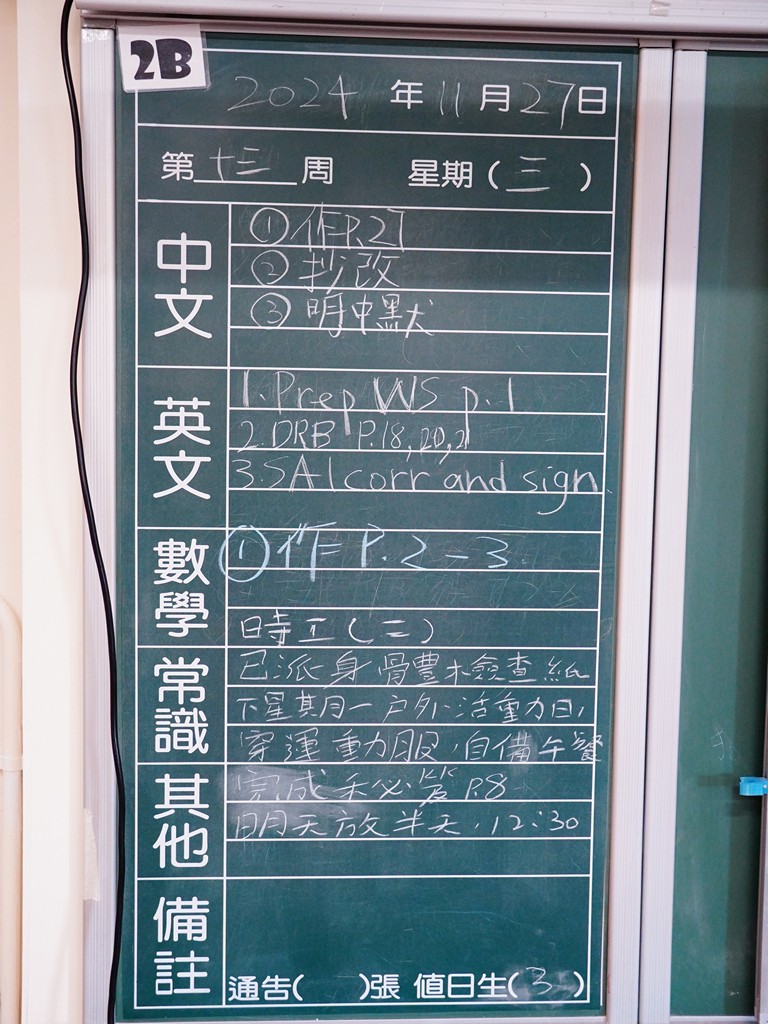 2B
2024 年 11 月 27 日
第 十三 周 星期 ( 三 )
中文
① 作P.27
② 抄改
③ 明中默
英文
1. Prep WS p.1
2. DRB P.18, 20, 21
3. SA1 corr and sign.
數學
① 作 P. 2 - 3
時工(二)
常識
已派身體檢查紙
下星期一戶外活動日,
穿運動服,自備午餐
其他
完成 P.8
明天放半天,12:30
備註
通告( )張 值日生( 3 )